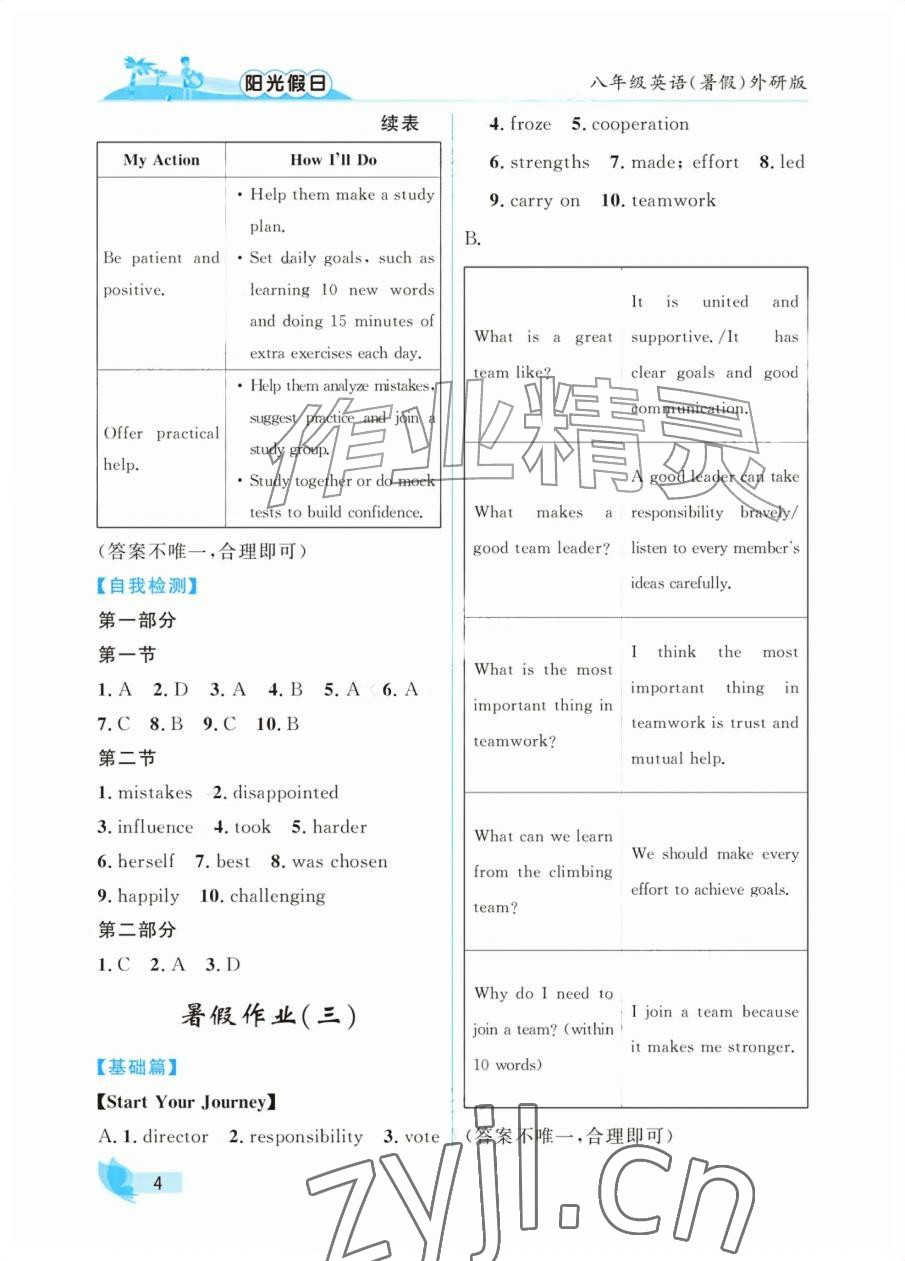 阳光假日
八年级英语(暑假)外研版
续表
My Action
How I'll Do
Be patient and
positive.
• Help them make a study
plan.
• Set daily goals, such as
learning 10 new words
and doing 15 minutes of
extra exercises each day.
Offer practical
help.
• Help them analyze mistakes,
suggest practice and join a
study group.
• Study together or do mock
tests to build confidence.
(答案不唯一,合理即可)
【自我检测】
第一部分
第一节
1. A 2. D 3. A 4. B 5. A 6. A
7. C 8. B 9. C 10. B
第二节
1. mistakes 2. disappointed
3. influence 4. took 5. harder
6. herself 7. best 8. was chosen
9. happily 10. challenging
第二部分
1. C 2. A 3. D
暑假作业(三)
【基础篇】
【Start Your Journey】
A. 1. director 2. responsibility 3. vote
4. froze 5. cooperation
6. strengths 7. made; effort 8. led
9. carry on 10. teamwork
B.
What is a great
team like?
It is united and
supportive./It has
clear goals and good
communication.
What makes a
good team leader?
A good leader can take
responsibility bravely/
listen to every member's
ideas carefully.
What is the most
important thing in
teamwork?
I think the most
important thing in
teamwork is trust and
mutual help.
What can we learn
from the climbing
team?
We should make every
effort to achieve goals.
Why do I need to
join a team? (within
10 words)
I join a team because
it makes me stronger.
(答案不唯一,合理即可)
4
作业精灵
zyjl.cn